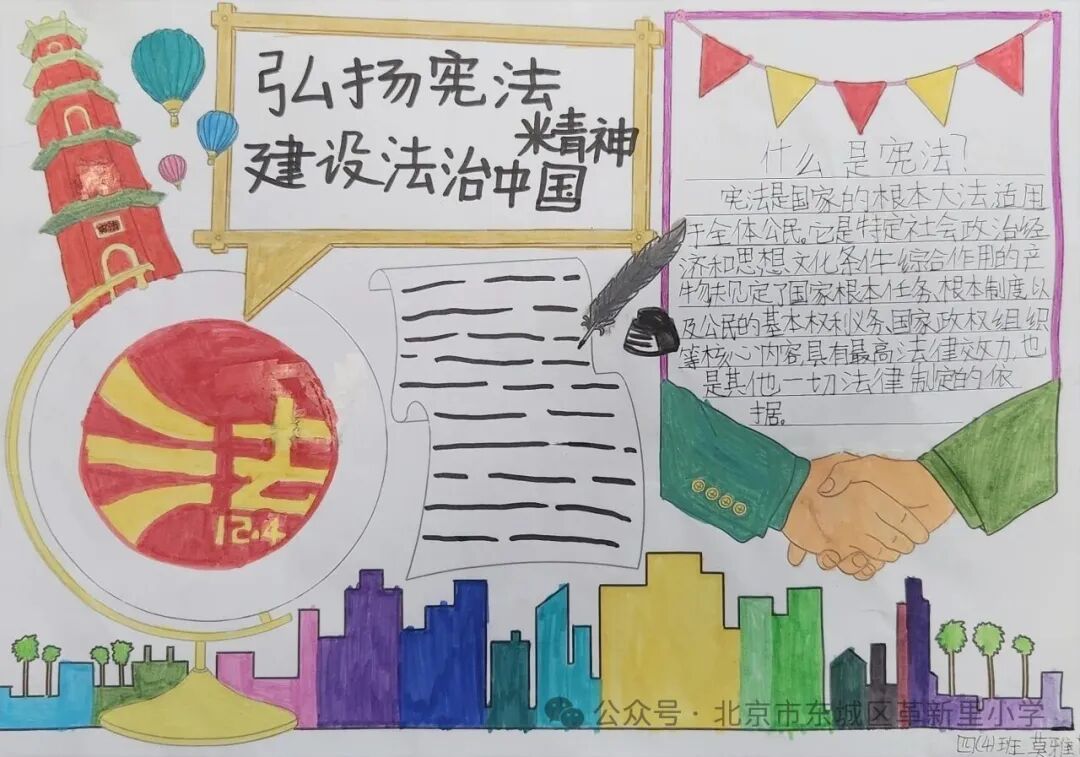 弘扬宪法
精神
建设法治中国
宪法
法
12.4
什么是宪法?
宪法是国家的根本大法,适用
于全体公民。它是特定社会政治经
济和思想、文化条件综合作用的产
物,规定了国家根本任务、根本制度以
及公民的基本权利义务、国家政权组织
等核心内容,具有最高法律效力,也
是其他一切法律制定的依
据。
公众号 · 北京市东城区革新里小学
四(4)班 莫雅